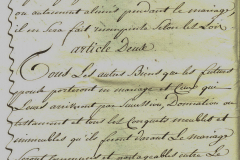 ou autrement aliénés pendant le mariage,
il en sera fait remploi selon les Loix
article Deux
Tous Les autres Biens que les futurs
époux porteront en mariage et Ceux qui
Leurs arriveront par Succession, Donation ou
testament et tous les Conquets meubles et
immeubles qu'ils feront durant Le mariage
seront Communs et partageables entre Le